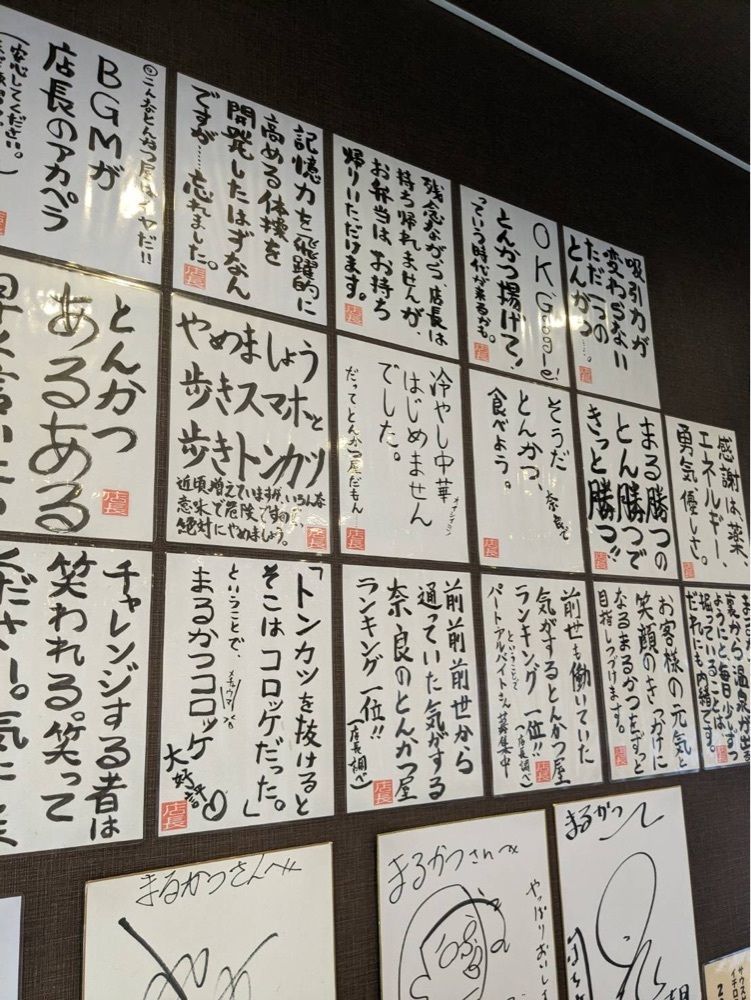 ◎こんなとんかつ屋はイヤだ!!
BGMが
店長のアカペラ
(安心してください。
記憶力を飛躍的に
高める体操を
開発したはずなん
ですが……忘れました。
店長
残念ながら、店長は
持ち帰れませんが、
お弁当は、お持ち
帰りいただけます。
店長
OK Google!
とんかつ揚げて!
っていう時代が来るかも。
店長
吸引力が
変わらない
ただ一つの
とんかつ…。
店長
とんかつ
あるある
早く言いたい
店長
やめましょう
歩きスマホと
歩きトンカツ
近頃増えていますが、いろんな
意味で危険ですので
絶対にやめましょう。
店長
冷やし中華
はじめません
でした。
だってとんかつ屋だもん……
店長
そうだ
とんかつ、
食べよう。
奈良で
店長
まる勝つの
とん勝つで
きっと勝つ!!
店長
感謝は薬
エネルギー、
勇気、優しさ。
店長
チャレンジする者は
笑われる。笑って
ください。気に
「トンカツを抜けると
そこはコロッケだった。」
ということで、
まるかつコロッケ
大好評
店長
前前前世から
通っていた気がする
奈良のとんかつ屋
ランキング一位!!
(店長調べ)
店長
前世も働いていた
気がするとんかつ屋
ランキング一位!!
(店長調べ)
ということで
パートアルバイトさん募集中
店長
お客様の元気と
笑顔のきっかけに
なるまるかつをずっと
目指しつづけます。
店長
裏から温泉が出る
ようにと毎日少しずつ
掘っていることは
だれにも内緒です。
店長
まるかつさんへ
まるかつさんへ
やっぱりおいし
まるかつ